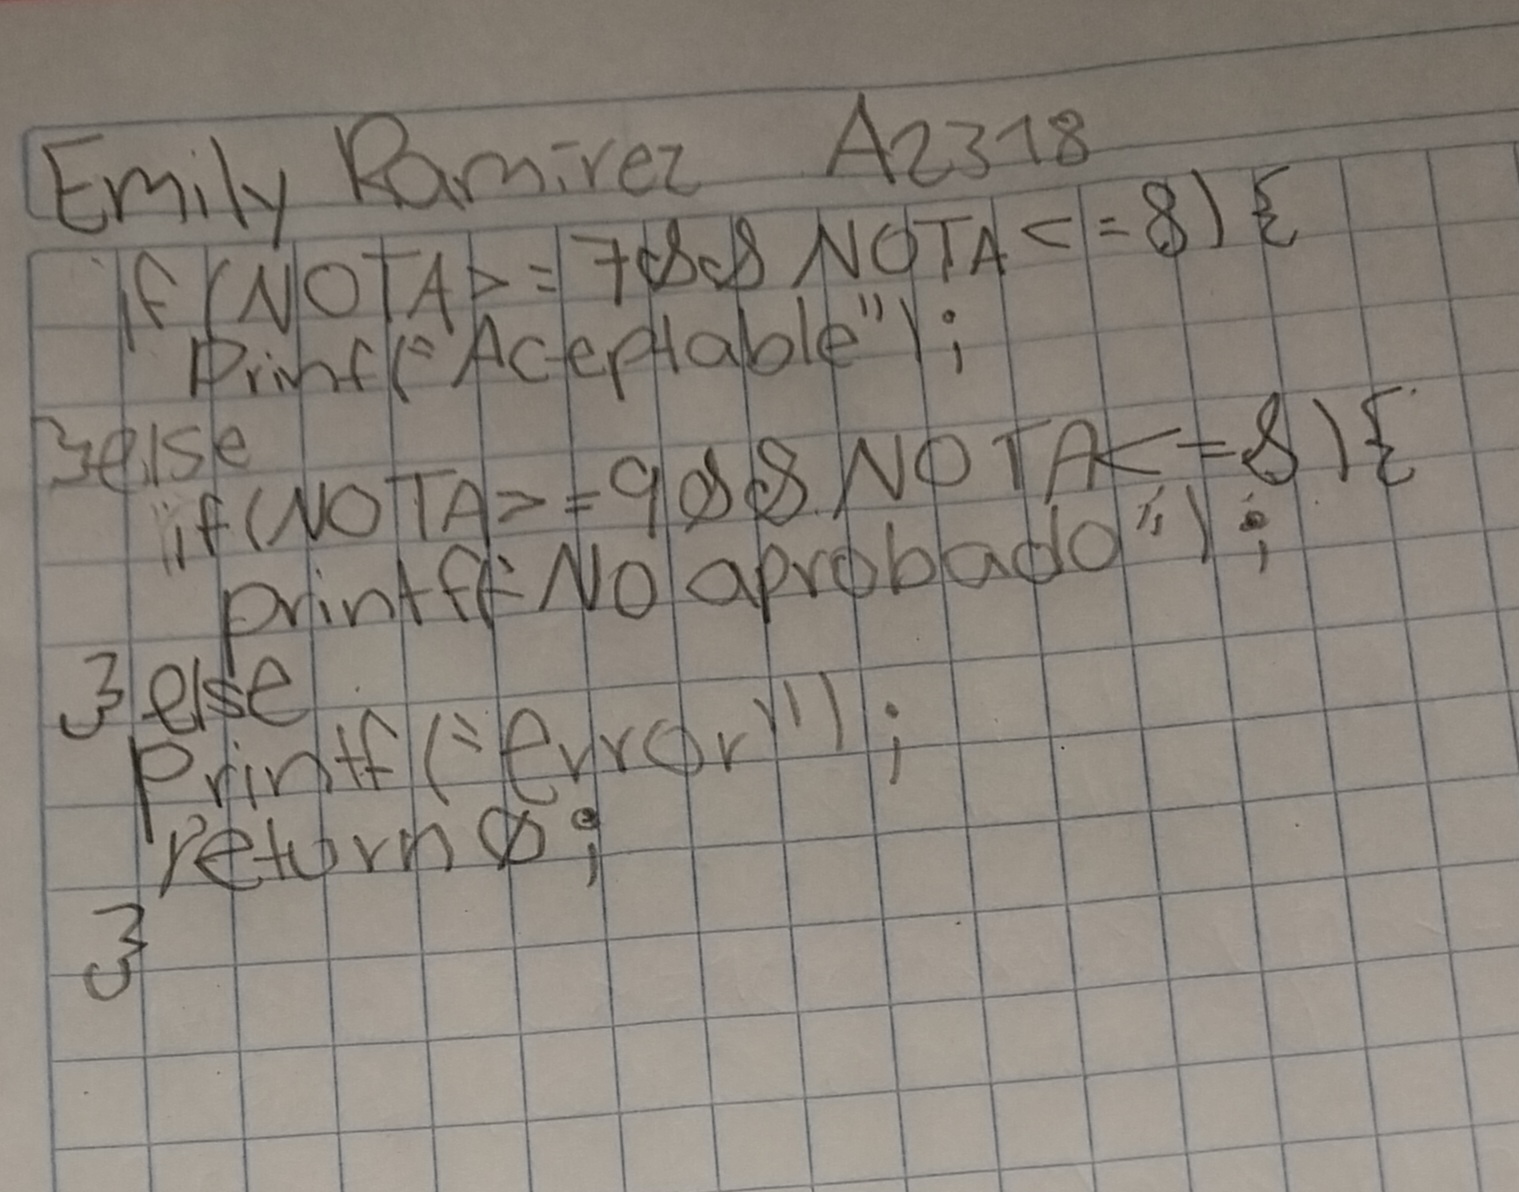 Emily Ramirez A2318
if (NOTA>=7&& NOTA<=8) {
Printf("Aceptable");
}else
if(NOTA>=9&& NOTA<=8){
printf("No aprobado");
}else
Printf("error");
return 0;
}